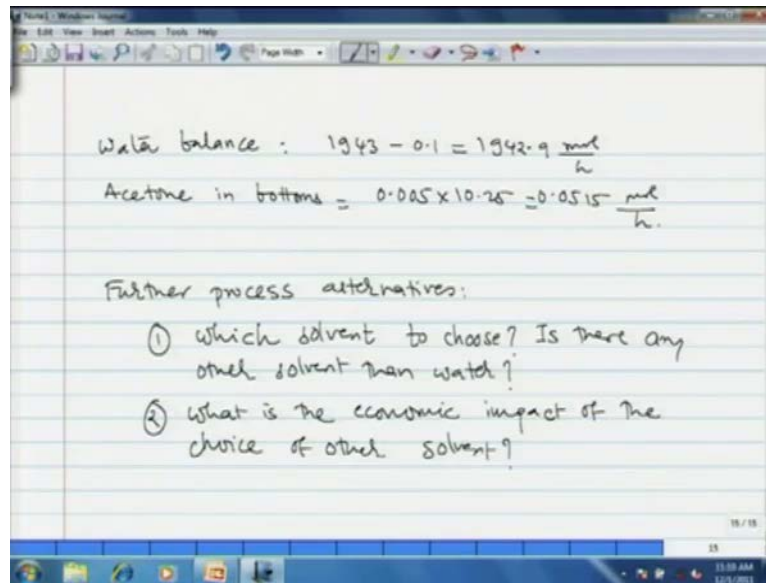 Note1 - Windows Journal
File Edit View Insert Actions Tools Help
Page Width
Water balance : 1943 - 0.1 = 1942.9 mol/h
Acetone in bottoms = 0.005 x 10.25 = 0.0515 mol/h.
Further process alternatives:
① which solvent to choose? Is there any
other solvent than water?
② what is the economic impact of the
choice of other solvent?
15 / 15
15
11:03 AM
12/1/2011